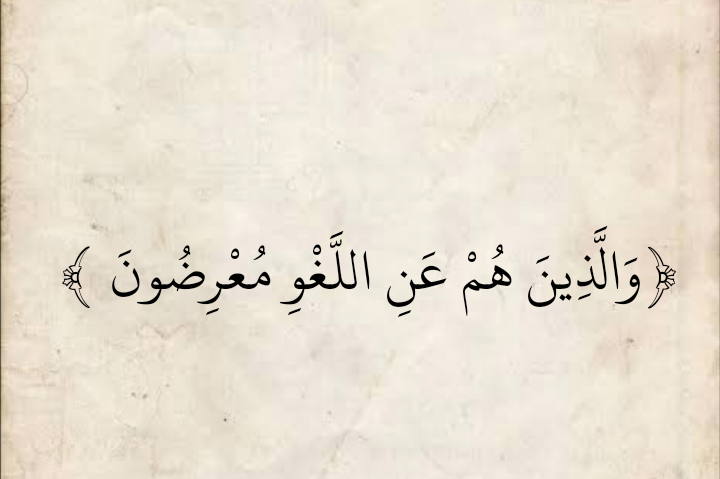 ﴿وَالَّذِينَ هُمْ عَنِ اللَّغْوِ مُعْرِضُونَ ﴾